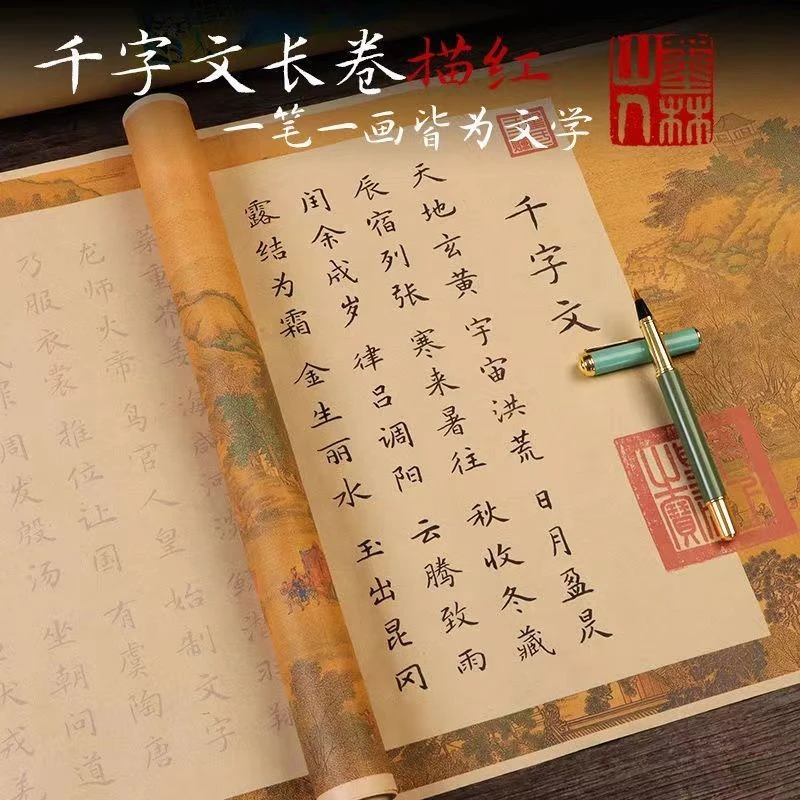 千字文长卷描红
一笔一画皆为文学
千字文
天地玄黄 宇宙洪荒 日月盈昃
辰宿列张 寒来暑往 秋收冬藏
闰余成岁 律吕调阳 云腾致雨
露结为霜 金生丽水 玉出昆冈
菜重芥姜 海咸河淡 鳞潜羽翔
龙师火帝 鸟官人皇 始制文字
乃服衣裳 推位让国 有虞陶唐
罪 周发殷汤 坐朝问道
伏戎羌